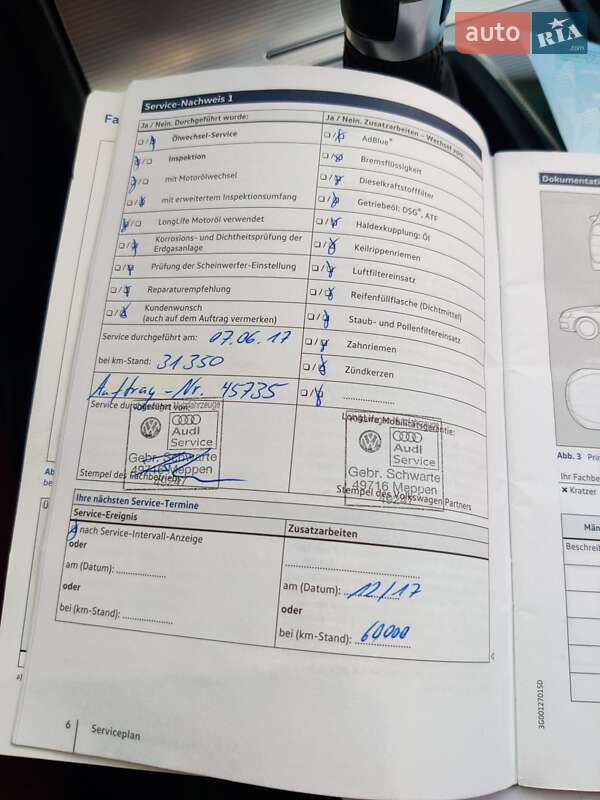 auto RIA .com
Fa
Service-Nachweis 1
Ja / Nein. Durchgeführt wurde:
Ölwechsel-Service
Inspektion
mit Motorölwechsel
mit erweitertem Inspektionsumfang
LongLife Motoröl verwendet
Korrosions- und Dichtheitsprüfung der
Erdgasanlage
Prüfung der Scheinwerfer-Einstellung
Reparaturempfehlung
Kundenwunsch
(auch auf dem Auftrag vermerken)
Service durchgeführt am: 07.06.17
bei km-Stand: 31350
Auftrag-Nr. 45735
Service durchgeführt von:
Audi
Service
Gebr. Schwarte
49716 Meppen
Stempel des Fachbetriebs
Ja / Nein. Zusatzarbeiten – Wechsel von:
AdBlue®
Bremsflüssigkeit
Dieselkraftstofffilter
Getriebeöl: DSG®, ATF
Haldexkupplung: Öl
Keilrippenriemen
Luftfiltereinsatz
Reifenfüllflasche (Dichtmittel)
Staub- und Pollenfiltereinsatz
Zahnriemen
Zündkerzen
LongLife Mobilitätsgarantie:
Audi
Service
Gebr. Schwarte
49716 Meppen
Stempel des Volkswagen Partners
Ihre nächsten Service-Termine
Service-Ereignis
nach Service-Intervall-Anzeige
oder
am (Datum):
oder
bei (km-Stand):
Zusatzarbeiten
am (Datum): 12/17
oder
bei (km-Stand): 60000
6 Serviceplan
Ab
be
a)
Dokumentati
Abb. 3 Prin
Ihr Fachbe
× Kratzer
Män
Beschreib
3G0012701SD